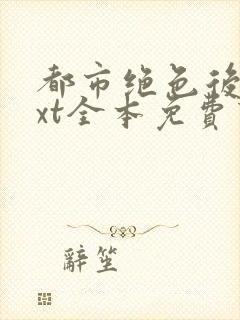 都市绝色後
xt全本免費
辭笙